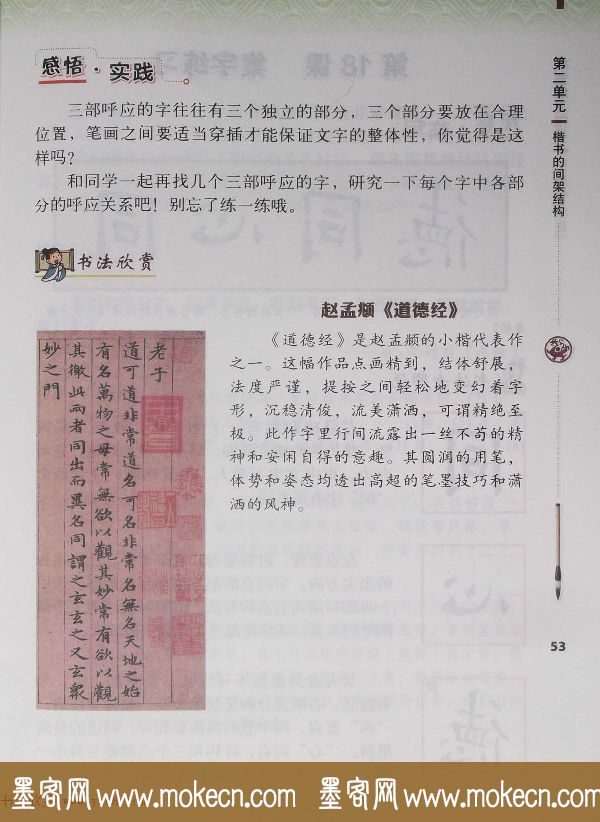 感悟·实践
三部呼应的字往往有三个独立的部分，三个部分要放在合理
位置，笔画之间要适当穿插才能保证文字的整体性，你觉得是这
样吗？
和同学一起再找几个三部呼应的字，研究一下每个字中各部
分的呼应关系吧！别忘了练一练哦。
书法欣赏
赵孟𬱖《道德经》
《道德经》是赵孟𬱖的小楷代表作
之一。这幅作品点画精到，结体舒展，
法度严谨，提按之间轻松地变幻着字
形，沉稳清俊，流美潇洒，可谓精绝至
极。此作字里行间流露出一丝不苟的精
神和安闲自得的意趣。其圆润的用笔，
体势和姿态均透出高超的笔墨技巧和潇
洒的风神。
老子
道可道非常道名可名非常名無名天地之始
有名萬物之母常無欲以觀其妙常有欲以觀
其徼此兩者同出而異名同謂之玄玄之又玄衆
妙之門
第二单元
楷书的间架结构
53
墨客网 www.mokecn.com 墨客网 www.mokecn.com